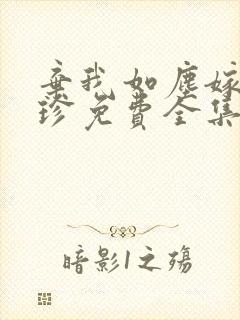 弃我如尘嫁
珍免费全集
暗影1之殇